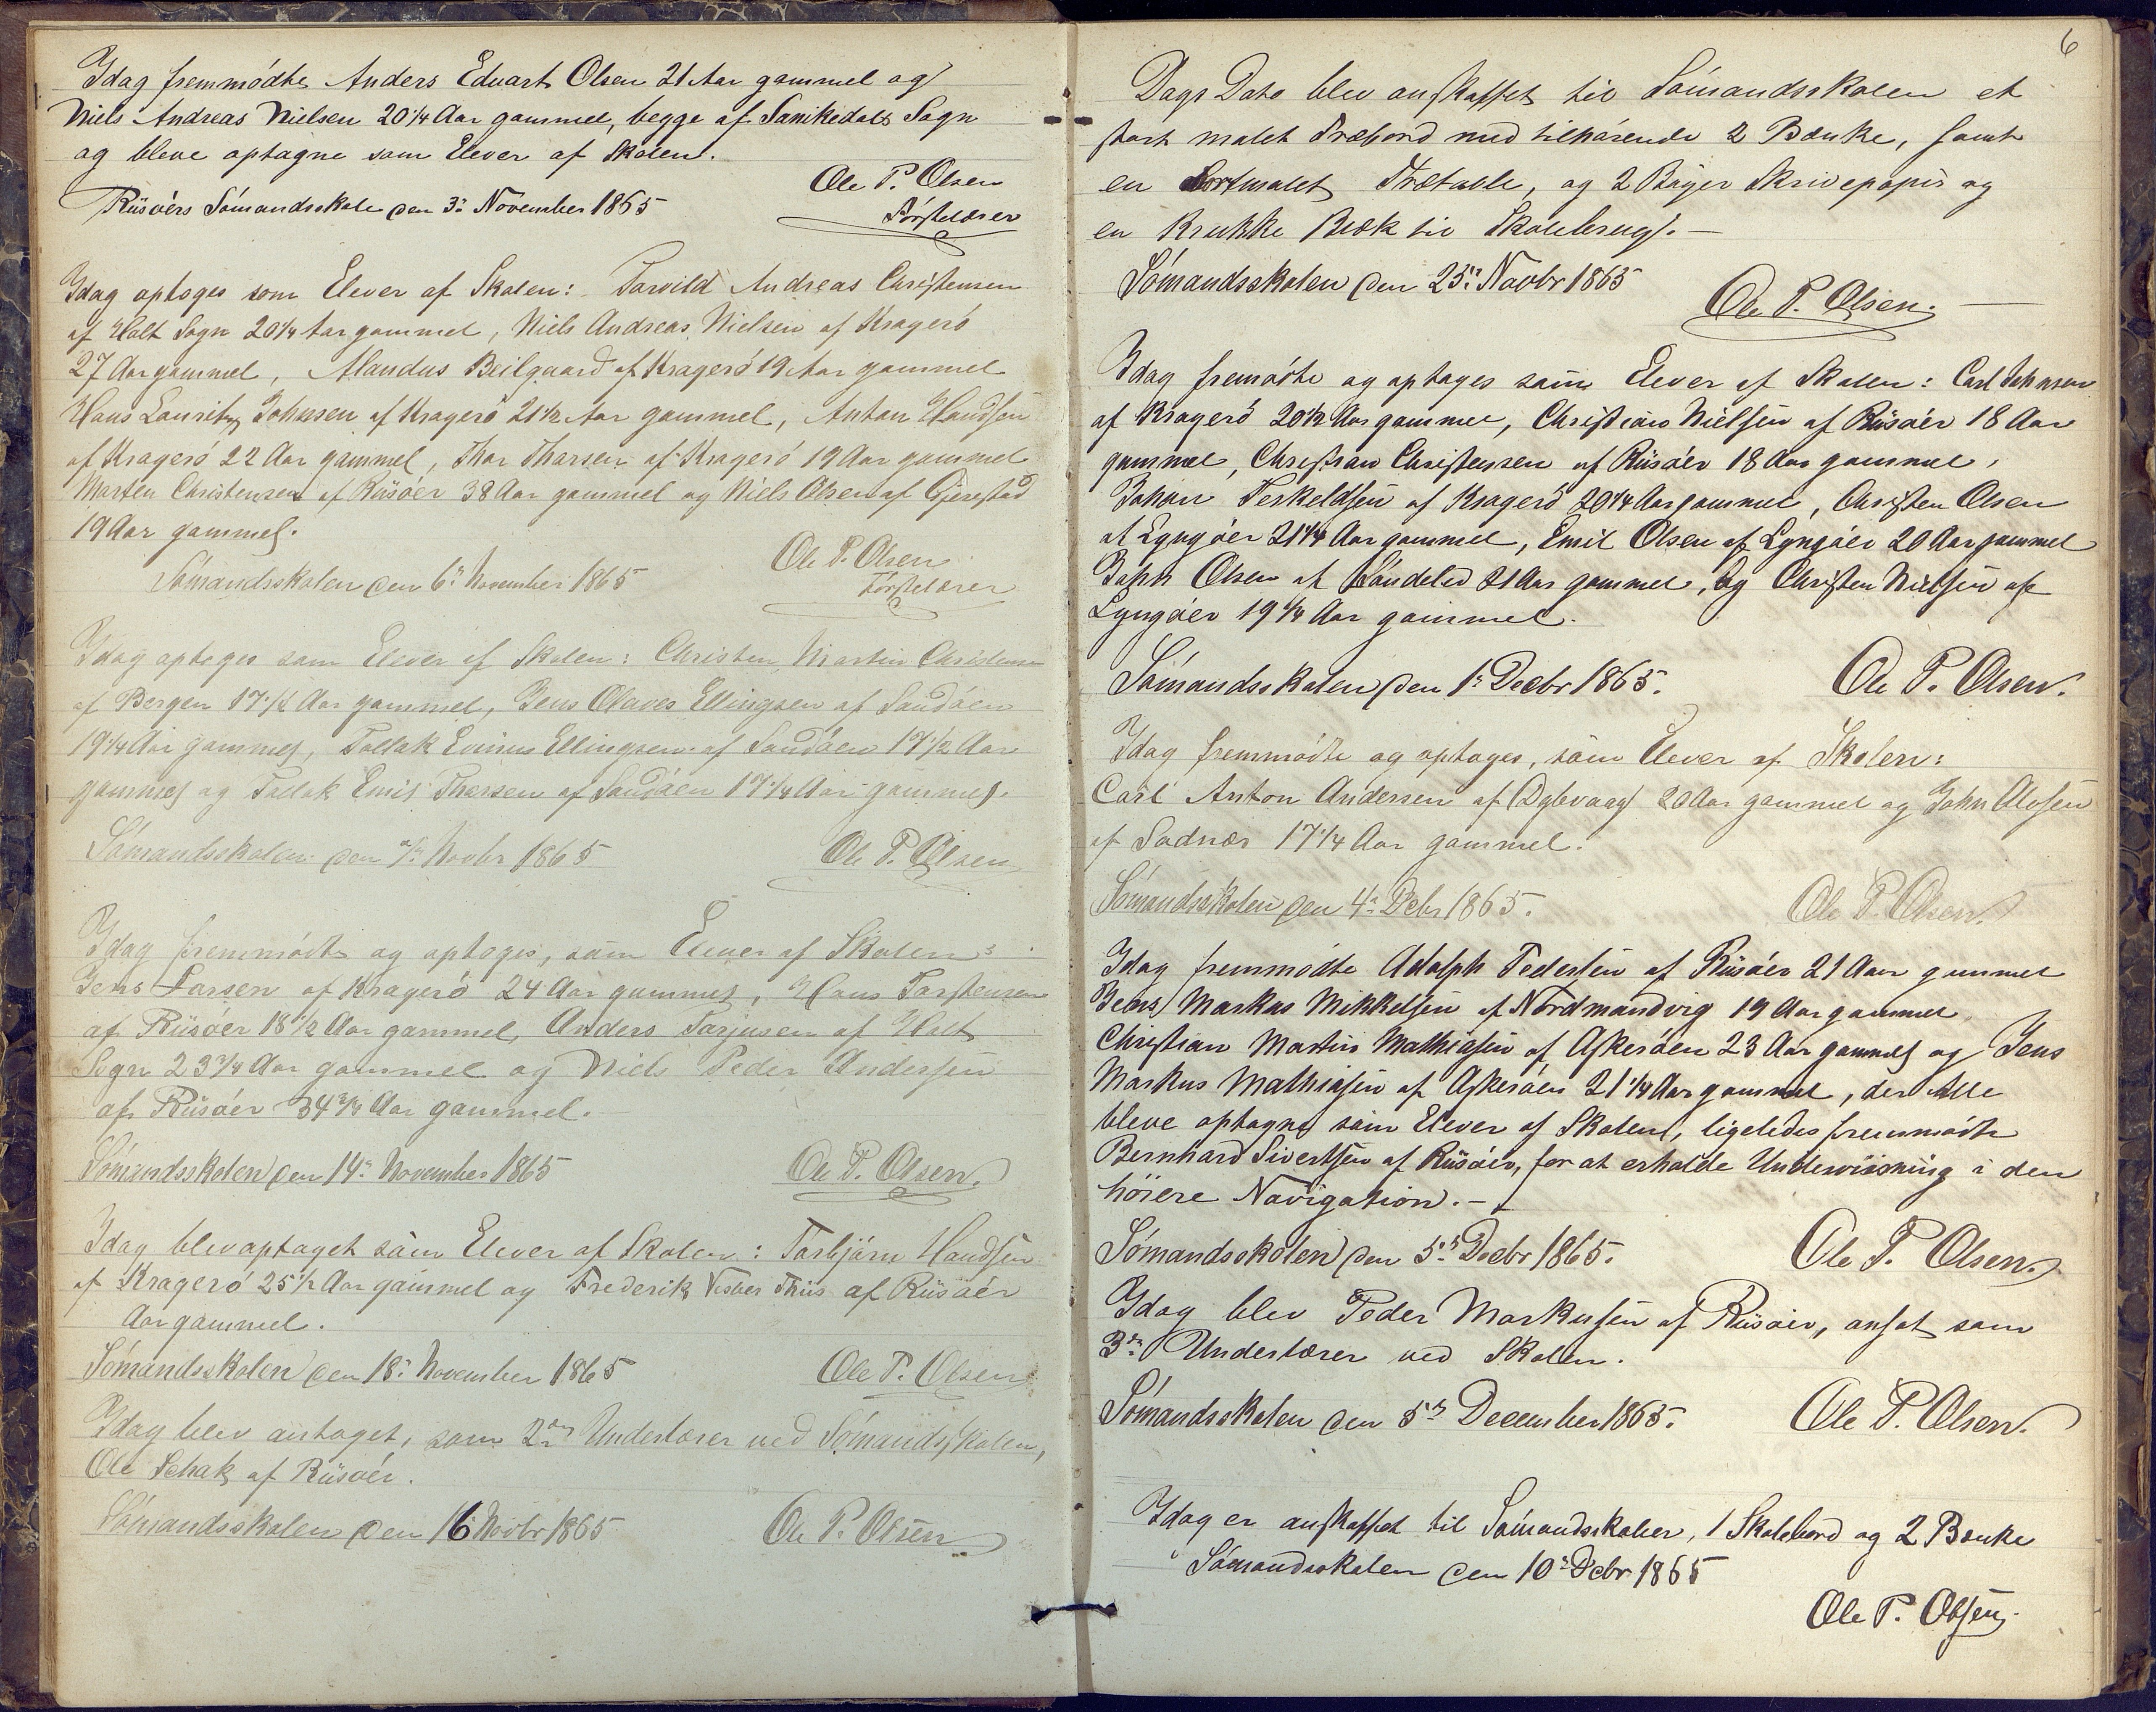 Idag fremmødte Anders Eduart Olsen 21 Aar gammel og
Niels Andreas Nielsen 20 1/4 Aar gammel, begge af Sanikedals Sogn
og bleve optagne som Elever af Skolen.
Ole P. Olsen
Riisøers Sømandsskole den 3: November 1865
Førstelærer
Idag optoges som Elever af Skolen: Torvild Andreas Christensen
af Holt Sogn 20 1/4 Aar gammel, Niels Andreas Nielsen af Kragerø
27 Aar gammel, Alandus Beilgaard af Kragerø 19 Aar gammel
Hans Lauritz Johnsen af Kragerø 21 1/2 Aar gammel, Anton Handsen
af Kragerø 22 Aar gammel, Thor Thorsen af Kragerø 19 Aar gammel
Morten Christensen af Riisøer 38 Aar gammel og Niels Olsen af Gjerestad
19 Aar gammel.
Ole P. Olsen
Sømandsskolen den 6: November 1865
Førstelærer
Idag optoges som Elever af Skolen: Christen Martin Christensen
af Bergen 17 1/2 Aar gammel, Jens Olaves Ellingsen af Sandøen
19 1/4 Aar gammel, Tallak Ellingsen af Sandøen 17 1/2 Aar
gammel og Tallak Emil Thorsen af Sandøen 17 1/4 Aar gammel.
Sømandsskolen den 7: Novbr 1865 Ole P. Olsen
Idag fremmødte og optoges, som Elever af Skolen:
Jens Larsen af Kragerø 24 Aar gammel, Hans Torstensen
af Riisøer 18 1/2 Aar gammel, Anders Torjusen af Holt
Sogn 23 3/4 Aar gammel og Niels Peder Andersen
af Riisøer 34 3/4 Aar gammel.
Sømandsskolen den 14: November 1865 Ole P. Olsen.
Idag blev optaget som Elever af Skolen: Torbjørn Handsen
af Kragerø 25 1/2 Aar gammel og Frederik Thiis af Riisøer
Aar gammel.
Sømandsskolen den 18: November 1865 Ole P. Olsen
Idag blev antaget, som 2den Underlærer ved Sømandsskolen,
Ole Schak af Riisøer.
Sømandsskolen den 16 Novbr 1865 Ole P. Olsen
6
Dags Dato blev anskaffet til Sømandsskolen et
stort malet Træbord med tilhørende 2 Bænke, samt
en sortmalet Trætavle, og 2 Bøger Skrivepapir og
en Krukke Blæk til Skolebrug. —
Sømandsskolen den 25: Novbr 1865
Ole P. Olsen. —
Idag fremødte og optoges som Elever af Skolen: Carl Johnsen
af Kragerø 20 1/2 Aar gammel, Christian Nielsen af Riisøer 18 Aar
gammel, Christian Christensen af Riisøer 18 Aar gammel,
Johan Terkeldsen af Kragerø 20 1/4 Aar gammel, Christen Olsen
af Lyngøer 21 1/4 Aar gammel, Emil Olsen af Lyngøer 20 Aar gammel
John Olsen af Søndeled 21 Aar gammel, og Christen Nielsen af
Lyngøer 19 1/4 Aar gammel.
Sømandsskolen den 1: Decbr 1865. Ole P. Olsen.
Idag fremmødte og optoges, som Elever af Skolen:
Carl Anton Andersen af Dybvaag 20 Aar gammel og John Olofsen
af Sadnæs 17 1/4 Aar gammel.
Sømandsskolen den 4: Debr 1865. Ole P. Olsen.
Idag fremmødte Adolph Pedersen af Riisøer 21 Aar gammel
Jens Markus Mikkelsen af Nordmandvig 19 Aar gammel,
Christian Martin Mathiasen af Askerøen 23 Aar gammel og Jens
Markus Mathiasen af Askerøen 21 1/4 Aar gammel, der Alle
bleve optagne som Elever af Skolen, ligeledes fremmødte
Bernhard Sivertsen af Riisøer, for at erholde Underviisning i den
høiere Navigation. —
Sømandsskolen den 5: Decbr 1865. Ole P. Olsen.
Idag blev Peder Markussen af Riisøer, ansat som
3die Underlærer ved Skolen.
Sømandsskolen den 5: December 1865. Ole P. Olsen.
Idag er anskaffet til Sømandsskolen, 1 Skolebord og 2 Bænke
Sømandsskolen den 10: Debr 1865
Ole P. Olsen.